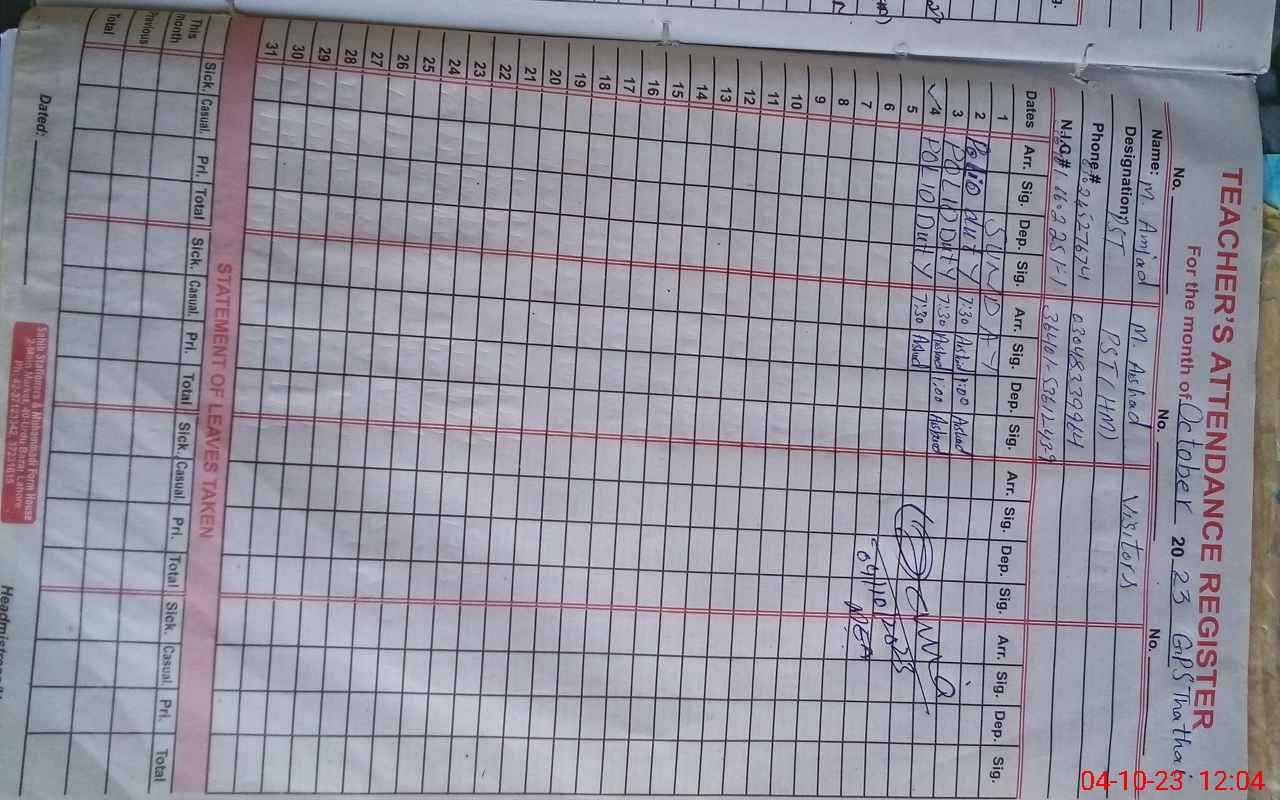 TEACHER'S ATTENDANCE REGISTER
For the month of October 2023 GPS Thatha
No. No. No.
Name: M. Amjad M. Ashad Visitors
Designation PST PST (HM)
Phone#
N.I.C#
Dates Arr. Sig. Dep. Sig. Arr. Sig. Dep. Sig. Arr. Sig. Dep. Sig. Arr. Sig. Dep. Sig.
1 SUNDAY
2 Polio duty 7:30 Ashad 1:00 Ashad
3 POLIO Duty 7:30 Ashad 1:00 Ashad
4 POLIO Duty 7:30 Ashad
5
6
7
8
9
10
11
12
13
14
15
16
17
18
19
20
21
22
23
24
25
26
27
28
29
30
31
04/10/2023
STATEMENT OF LEAVES TAKEN
Sick. Casual. Pri. Total Sick. Casual. Pri. Total Sick. Casual. Pri. Total Sick. Casual. Pri. Total
This month
Previous
Total
Dated:
Sahil Stationers & Muhammadi Form House
2-Main Market, 40-Urdu Bazar Lahore
04-10-23 12:04